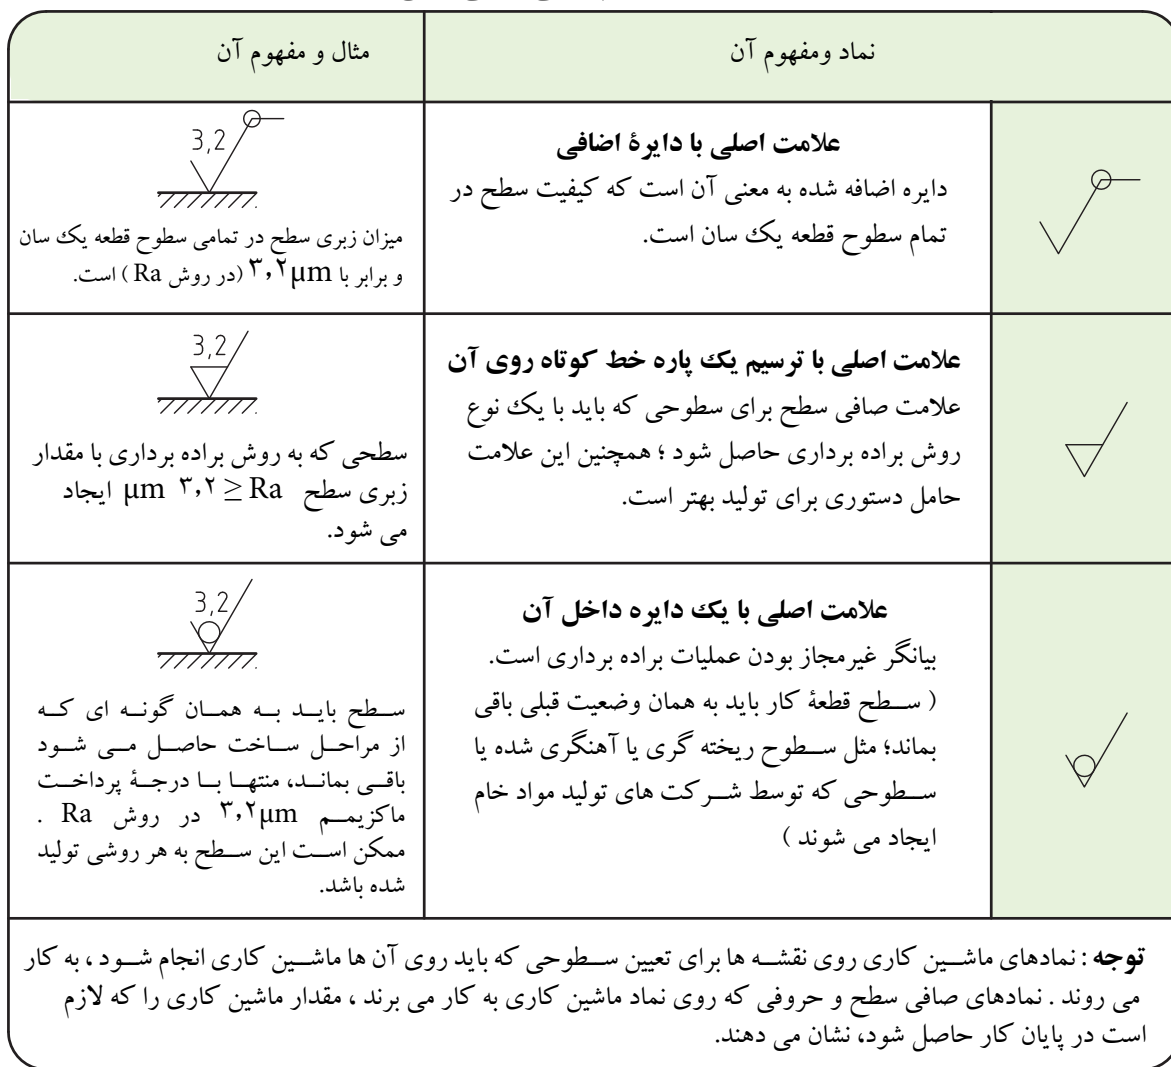 نماد ومفهوم آن
مثال و مفهوم آن
علامت اصلی با دایرۀ اضافی
دایره اضافه شده به معنی آن است که کیفیت سطح در
تمام سطوح قطعه یک سان است.
3,2
میزان زبری سطح در تمامی سطوح قطعه یک سان
و برابر با ۳٫۲µm (در روش Ra ) است.
علامت اصلی با ترسیم یک پاره خط کوتاه روی آن
علامت صافی سطح برای سطوحی که باید با یک نوع
روش براده برداری حاصل شود ؛ همچنین این علامت
حامل دستوری برای تولید بهتر است.
3,2
سطحی که به روش براده برداری با مقدار
زبری سطح µm ۳٫۲ ≥ Ra ایجاد
می شود.
علامت اصلی با یک دایره داخل آن
بیانگر غیرمجاز بودن عملیات براده برداری است.
( سطح قطعۀ کار باید به همان وضعیت قبلی باقی
بماند؛ مثل سطوح ریخته گری یا آهنگری شده یا
سطوحی که توسط شرکت های تولید مواد خام
ایجاد می شوند )
3,2
سطح باید به همان گونه ای که
از مراحل ساخت حاصل می شود
باقی بماند، منتها با درجۀ پرداخت
ماکزیمم ۳٫۲µm در روش Ra .
ممکن است این سطح به هر روشی تولید
شده باشد.
توجه : نمادهای ماشین کاری روی نقشه ها برای تعیین سطوحی که باید روی آن ها ماشین کاری انجام شود ، به کار
می روند . نمادهای صافی سطح و حروفی که روی نماد ماشین کاری به کار می برند ، مقدار ماشین کاری را که لازم
است در پایان کار حاصل شود، نشان می دهند.